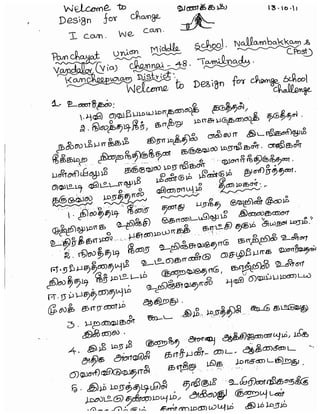 Welcome to வணக்கம் 13.10.11
Design for Change
I can. We can.
Panchayat Union Middle School, Nallambakkam (Post)
Vandalur (Via) Chennai - 48. Tamilnadu
Kancheepuram District.
Welcome to Design for change School
Challenge
1. உணர்தல்:
1. புவி வெப்பமயமாகுதலைத் தடுத்தல்,
2. நிலத்தடிநீர், காற்று மாசுபடுதலைத் தடுத்தல்.
நல்லம்பாக்கம் கிராமத்தில் எல்லா இடங்களிலும்
நீக்கமற நிறைந்திருந்தன கருவேல மரங்கள். எங்கள்
பள்ளியிலும் கருவேல மரங்கள் வளர்ந்திருந்தன.
வெட்டி விட்டாலும் மீண்டும் மீண்டும் துளிர்த்தன.
கருவேல மரத்தால் விளையும் தீமைகள்:-
1. நிலத்தடி நீரை தனது பரந்த வேரின் மூலம்
முற்றிலுமாக உறிஞ்சி கோடையிலும் இலைகளை
உதிர்க்காமல் பசுமையாகக் காட்சி தரும்
2. நிலத்தடி நீரை உறிஞ்சுவதோடு காற்றில் உள்ள
ஈரப்பதத்தையும் உட்கொண்டு செழிப்பாக வளர்வதால்
நிலத்தடி நீர்மட்டம் குறைவதோடு, காற்றில் உள்ள
ஈரப்பதத்தையும் உறிஞ்சுவதால் புவி வெப்பமடைய
மூலக் காரணம் ஆகிறது.
3. பறவைகள் கூட இம் மரத்தில் கூடு கட்டுவது
இல்லை.
4. இம் மரம் குறைந்த அளவு ஆக்ஸிஜனையும், மிக
அதிக அளவில் கார்பன்-டை-ஆக்ஸைடை
வெளிவிடுவதால் காற்று மிக மாசடைகிறது.
5. இம் மரத்தடியில் தங்கும் உயிரினங்களுக்கு
மலட்டுத்தன்மையும், அல்லது குறையுடன்
தன்மையையும் இம்மரம்